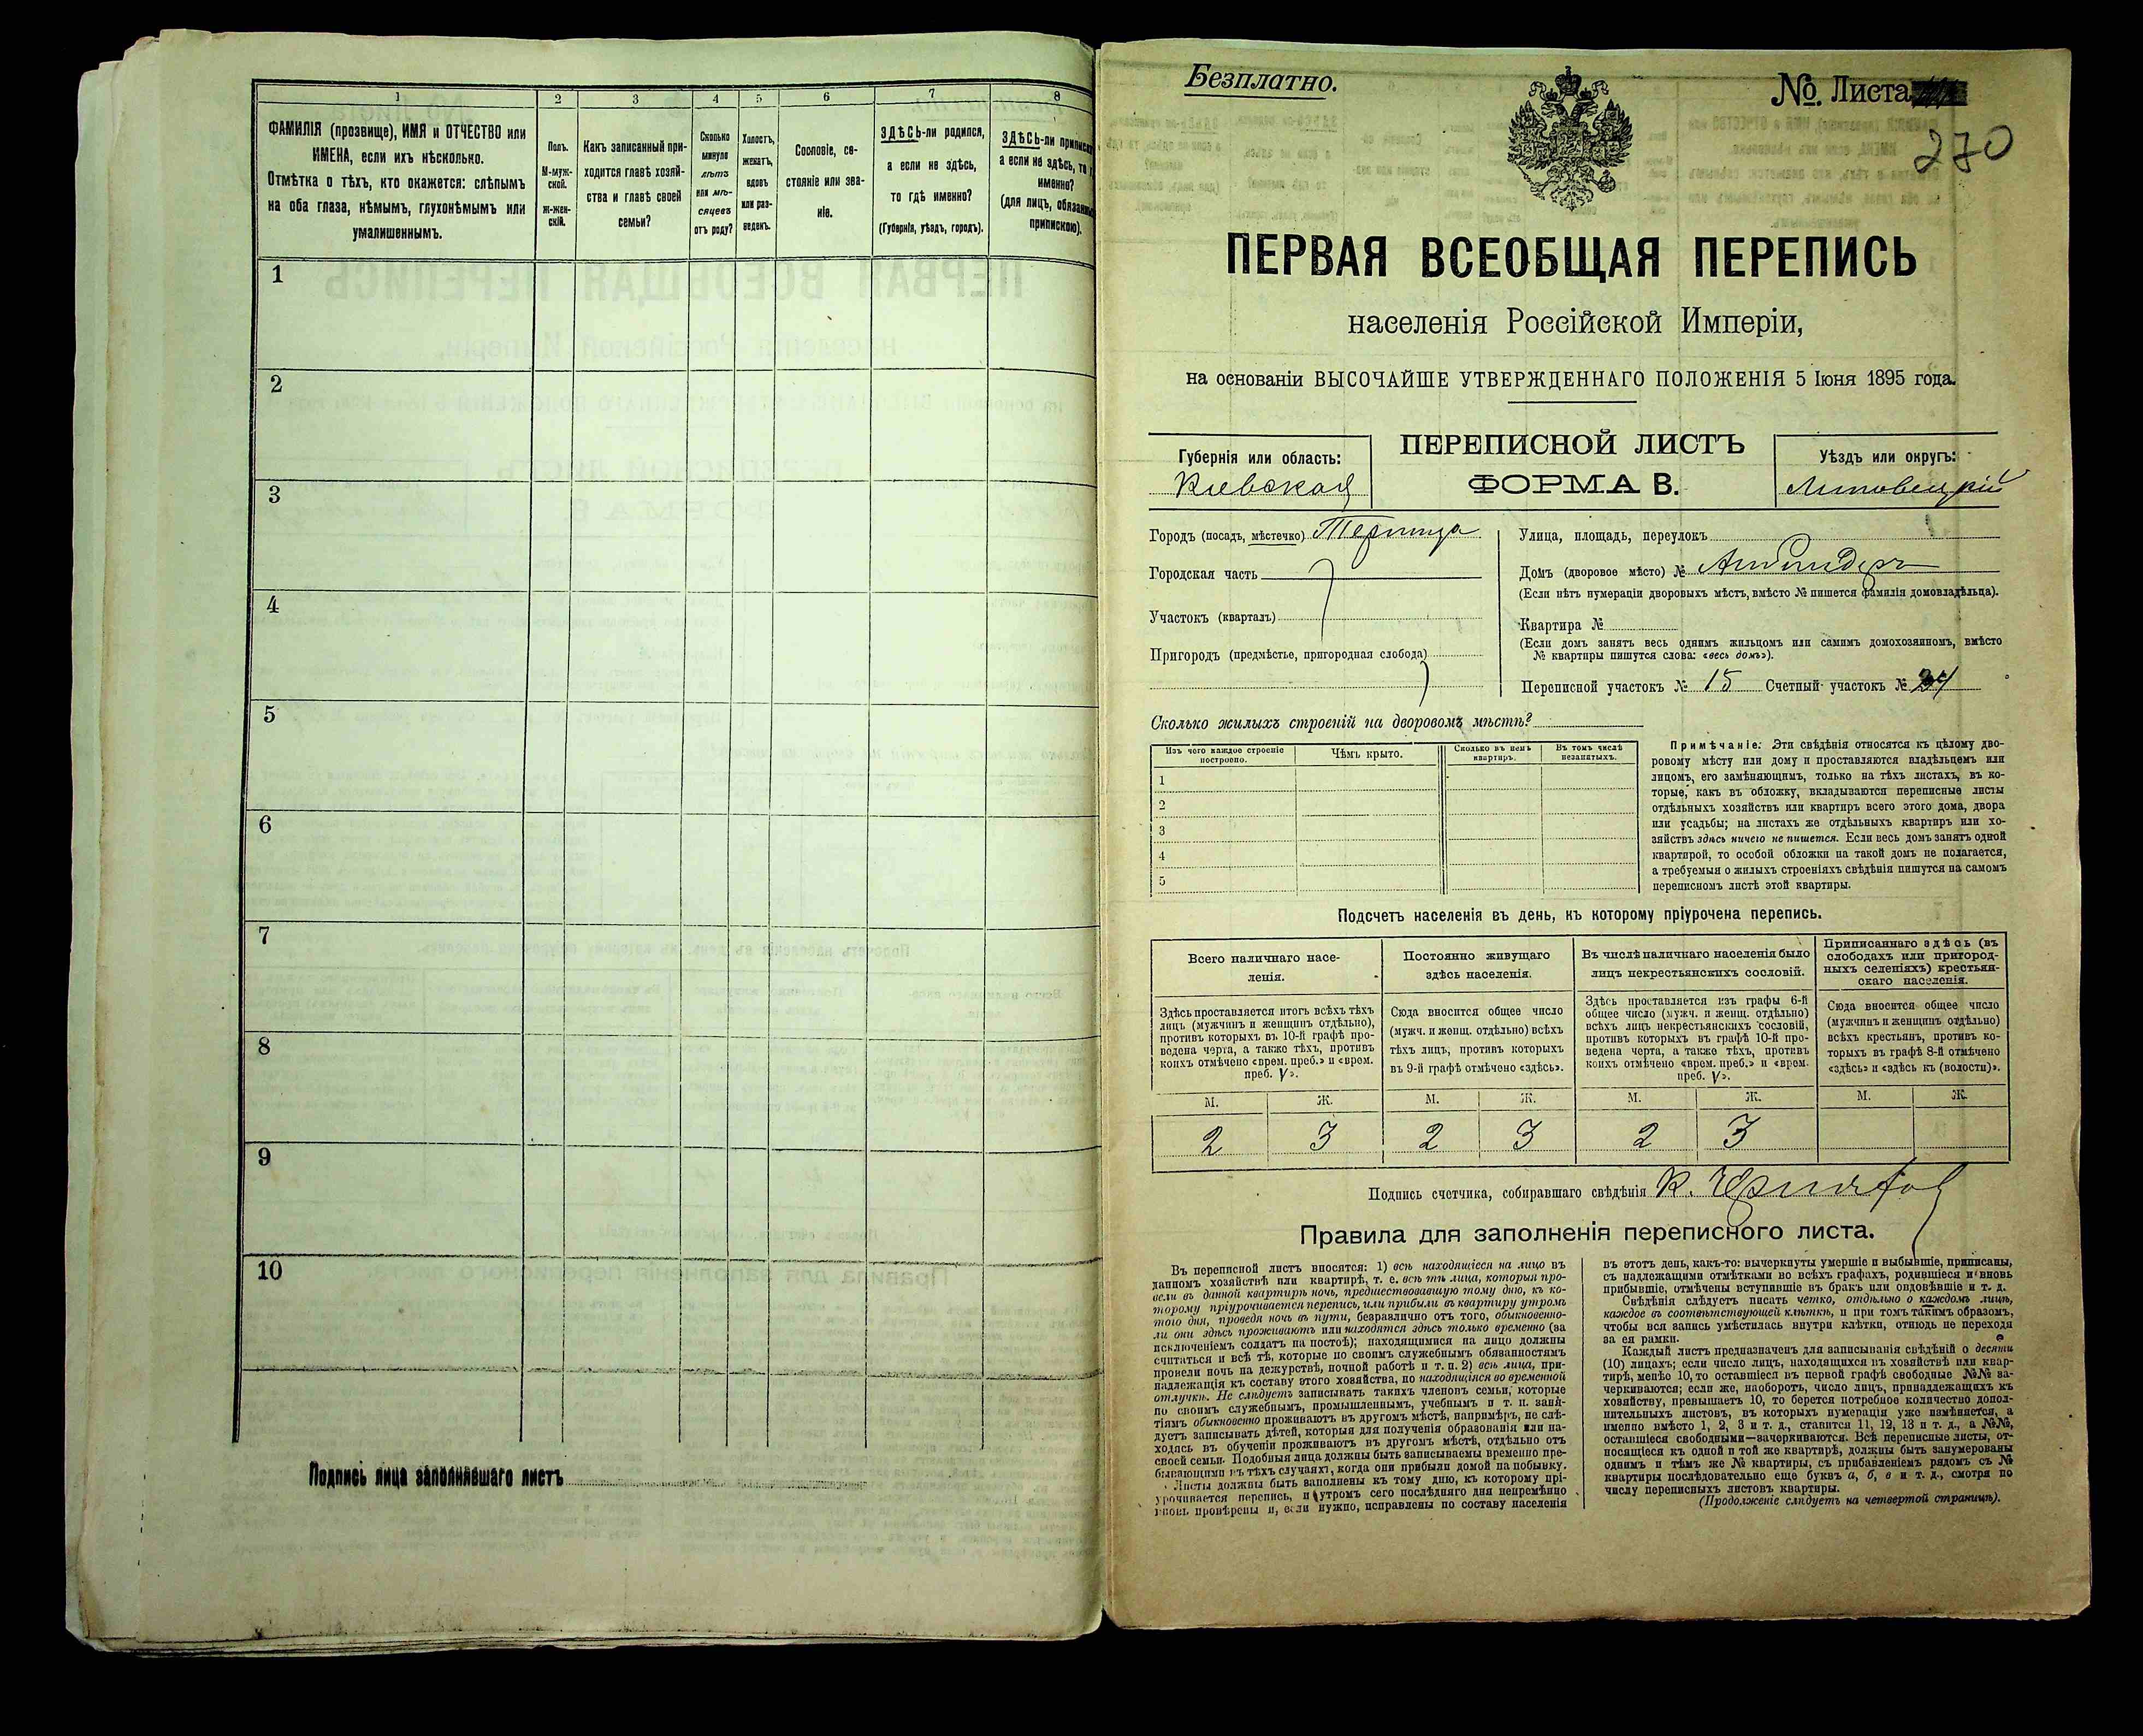 1
2
3
4
5
6
7
8
ФАМИЛІЯ (прозвище), ИМЯ и ОТЧЕСТВО или
ИМЕНА, если ихъ нѣсколько.
Отмѣтка о тѣхъ, кто окажется: слѣпымъ
на оба глаза, нѣмымъ, глухонѣмымъ или
умалишеннымъ.
Полъ.
М-муж-
ской.
Ж-жен-
скій.
Какъ записанный при-
ходится главѣ хозяй-
ства и главѣ своей
семьи?
Сколько
минуло
лѣтъ
или мѣ-
сяцевъ
отъ роду?
Холостъ,
женатъ,
вдовъ
или раз-
веденъ.
Сословіе, со-
стояніе или зва-
ніе.
ЗДѢСЬ-ли родился,
а если не здѣсь,
то гдѣ именно?
(Губернія, уѣздъ, городъ).
ЗДѢСЬ-ли
а если не здѣсь, то
именно?
(для лицъ,
припискою).
1
2
3
4
5
6
7
8
9
10
Подпись лица заполнявшаго листъ
Безплатно.
№. Листа
270
ПЕРВАЯ ВСЕОБЩАЯ ПЕРЕПИСЬ
населенія Россійской Имперіи,
на основаніи ВЫСОЧАЙШЕ УТВЕРЖДЕННАГО ПОЛОЖЕНІЯ 5 Іюня 1895 года.
Губернія или область:
Кіевская
ПЕРЕПИСНОЙ ЛИСТЪ
ФОРМА В.
Уѣздъ или округъ:
Липовецкій
Городъ (посадъ, мѣстечко)
Городская часть
Участокъ (кварталъ)
Пригородъ (предмѣстье, пригородная слобода)
Улица, площадь, переулокъ
Домъ (дворовое мѣсто) №
(Если нѣтъ нумераціи дворовыхъ мѣстъ, вмѣсто № пишется фамилія домовладѣльца).
Квартира №
(Если домъ занятъ весь однимъ жильцомъ или самимъ домохозяиномъ, вмѣсто
№ квартиры пишутся слова: «весь домъ»).
Переписной участокъ № 15 Счетный участокъ №
Сколько жилыхъ строеній на дворовомъ мѣстѣ?
Изъ чего каждое строеніе
построено.
Чѣмъ крыто.
Сколько въ немъ
квартиръ.
Въ томъ числѣ
незанятыхъ.
1
2
3
4
5
Примѣчаніе: Эти свѣдѣнія относятся къ цѣлому дво-
ровому мѣсту или дому и проставляются владѣльцемъ или
лицомъ, его замѣняющимъ, только на тѣхъ листахъ, въ ко-
торые, какъ въ обложку, вкладываются переписные листы
отдѣльныхъ хозяйствъ или квартиръ всего этого дома, двора
или усадьбы; на листахъ же отдѣльныхъ квартиръ или хо-
зяйствъ здѣсь ничего не пишется. Если весь домъ занятъ одной
квартирой, то особой обложки на такой домъ не полагается,
а требуемыя о жилыхъ строеніяхъ свѣдѣнія пишутся на самомъ
переписномъ листѣ этой квартиры.
Подсчетъ населенія въ день, къ которому пріурочена перепись.
Всего наличнаго насе-
ленія.
Постоянно живущаго
здѣсь населенія.
Въ числѣ наличнаго населенія было
лицъ некрестьянскихъ сословій.
Приписаннаго здѣсь (въ
слободахъ или пригород-
ныхъ селеніяхъ) крестьян-
скаго населенія.
Здѣсь проставляется итогъ всѣхъ тѣхъ
лицъ (мужчинъ и женщинъ отдѣльно),
противъ которыхъ въ 10-й графѣ про-
ведена черта, а также тѣхъ, противъ
коихъ отмѣчено «врем. преб.» и «врем.
преб. V».
Сюда вносится общее число
(мужч. и женщ. отдѣльно) всѣхъ
тѣхъ лицъ, противъ которыхъ
въ 9-й графѣ отмѣчено «здѣсь».
Здѣсь проставляется изъ графы 6-й
общее число (мужч. и женщ. отдѣльно)
всѣхъ лицъ некрестьянскихъ сословій,
противъ которыхъ въ графѣ 10-й про-
ведена черта, а также тѣхъ, противъ
коихъ отмѣчено «врем. преб.» и «врем.
преб. V».
Сюда вносится общее число
(мужчинъ и женщинъ отдѣльно)
всѣхъ крестьянъ, противъ ко-
торыхъ въ графѣ 8-й отмѣчено
«здѣсь» и «здѣсь къ (волости)».
М. Ж. М. Ж. М. Ж. М. Ж.
2 3 2 3 2 3
Подпись счетчика, собиравшаго свѣдѣнія К.
Правила для заполненія переписного листа.
Въ переписной листъ вносятся: 1) всѣ находящіеся на лицо въ
данномъ хозяйствѣ или квартирѣ, т. е. всѣ тѣ лица, которыя про-
вели въ данной квартирѣ ночь, предшествовавшую тому дню, къ ко-
торому пріурочивается перепись, или прибыли въ квартиру утромъ
того дня, проведя ночь въ пути, безразлично отъ того, обыкновенно-
ли они здѣсь проживаютъ или находятся здѣсь только временно (за
исключеніемъ солдатъ на постоѣ); находящимися на лицо должны
считаться и всѣ тѣ, которые по своимъ служебнымъ обязанностямъ
провели ночь на дежурствѣ, ночной работѣ и т. п. 2) всѣ лица, при-
надлежащія къ составу этого хозяйства, но находящіяся во временной
отлучкѣ. Не слѣдуетъ записывать такихъ членовъ семьи, которые
по своимъ служебнымъ, промышленнымъ, учебнымъ и т. п. заня-
тіямъ обыкновенно проживаютъ въ другомъ мѣстѣ, напримѣръ, не слѣ-
дуетъ записывать дѣтей, которыя для полученія образованія или на-
ходясь въ обученіи проживаютъ въ другомъ мѣстѣ, отдѣльно отъ
своей семьи. Подобныя лица должны быть записываемы временно пре-
бывающими въ тѣхъ случаяхъ, когда они прибыли домой на побывку.
Листы должны быть заполнены къ тому дню, къ которому прі-
урочивается перепись, и утромъ сего послѣдняго дня непремѣнно
вновь провѣрены и, если нужно, исправлены по составу населенія
въ этотъ день, какъ-то: вычеркнуты умершіе и выбывшіе, приписаны,
съ надлежащими отмѣтками во всѣхъ графахъ, родившіеся и вновь
прибывшіе, отмѣчены вступившіе въ бракъ или овдовѣвшіе и т. д.
Свѣдѣнія слѣдуетъ писать четко, отдѣльно о каждомъ лицѣ,
каждое въ соотвѣтствующей клѣткѣ, и при томъ такимъ образомъ,
чтобы вся запись умѣстилась внутри клѣтки, отнюдь не переходя
за ея рамки.
Каждый листъ предназначенъ для записыванія свѣдѣній о десяти
(10) лицахъ; если число лицъ, находящихся въ хозяйствѣ или квар-
тирѣ, менѣе 10, то оставшіеся въ первой графѣ свободные №№ за-
черкиваются; если же, наоборотъ, число лицъ, принадлежащихъ къ
хозяйству, превышаетъ 10, то берется потребное количество допол-
нительныхъ листовъ, въ которыхъ нумерація уже измѣняется, а
именно вмѣсто 1, 2, 3 и т. д., ставится 11, 12, 13 и т. д., а №№,
оставшіеся свободными—зачеркиваются. Всѣ переписные листы, от-
носящіеся къ одной и той же квартирѣ, должны быть занумерованы
однимъ и тѣмъ же № квартиры, съ прибавленіемъ рядомъ съ №
квартиры послѣдовательно еще буквъ а, б, в и т. д., смотря по
числу переписныхъ листовъ квартиры.
(Продолженіе слѣдуетъ на четвертой страницѣ).